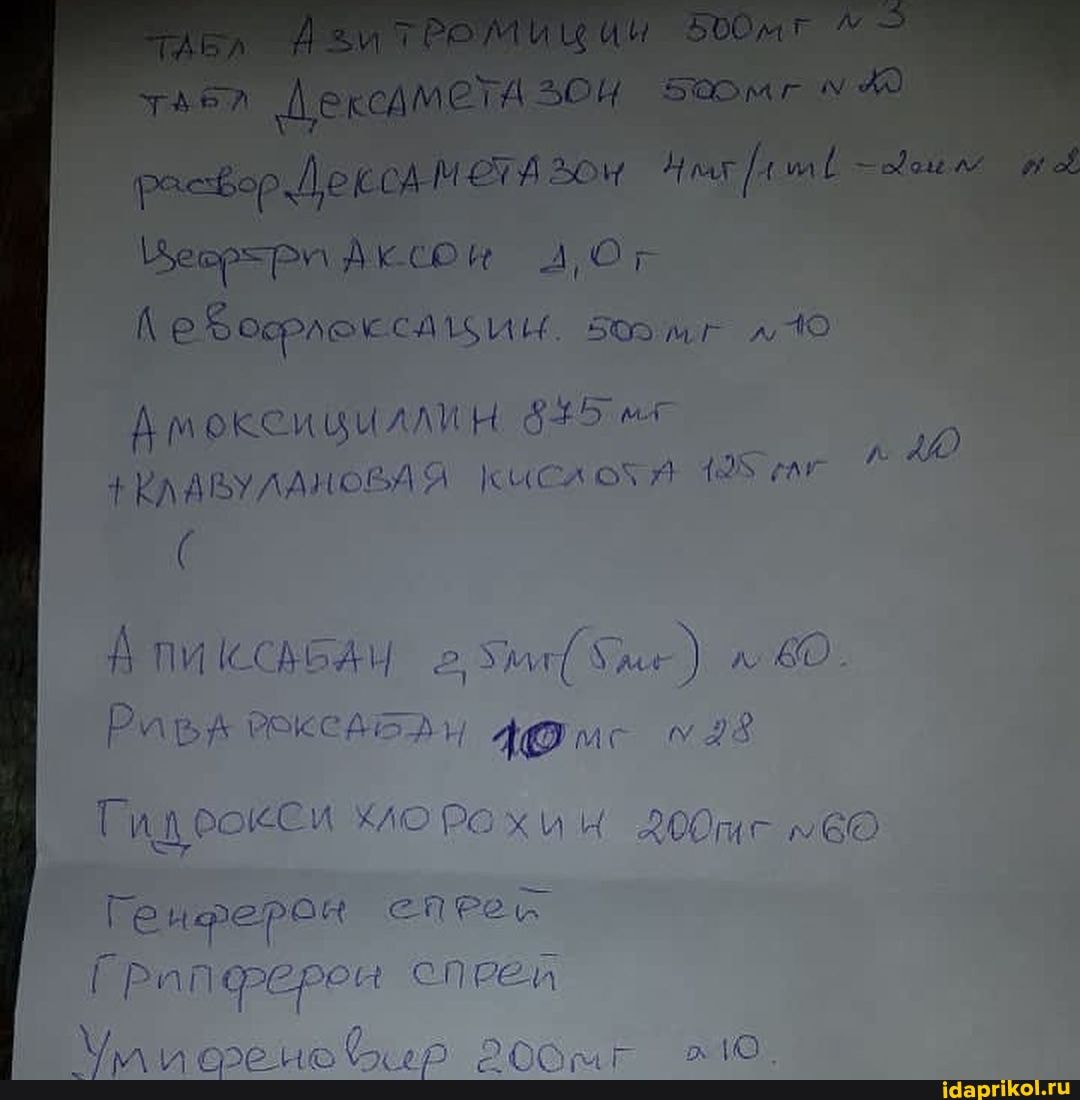 ТАБЛ Азитромицин 500мг N 3
ТАБЛ Дексаметазон 500мг N 20
раствор Дексаметазон 4мг/1ml - N 2
Цефтриаксон 1,0г
Левофлоксацин. 500мг N 10
Амоксициллин 875мг
+ Клавулановая кислота 125мг N 20
(
Апиксабан 2,5мг(5мг) N 60.
Ривароксабан 10мг N 28
Гидроксихлорохин 200мг N 60
Генферон спрей
Грипферон спрей
Умифеновир 200мг N 10.
idaprikol.ru